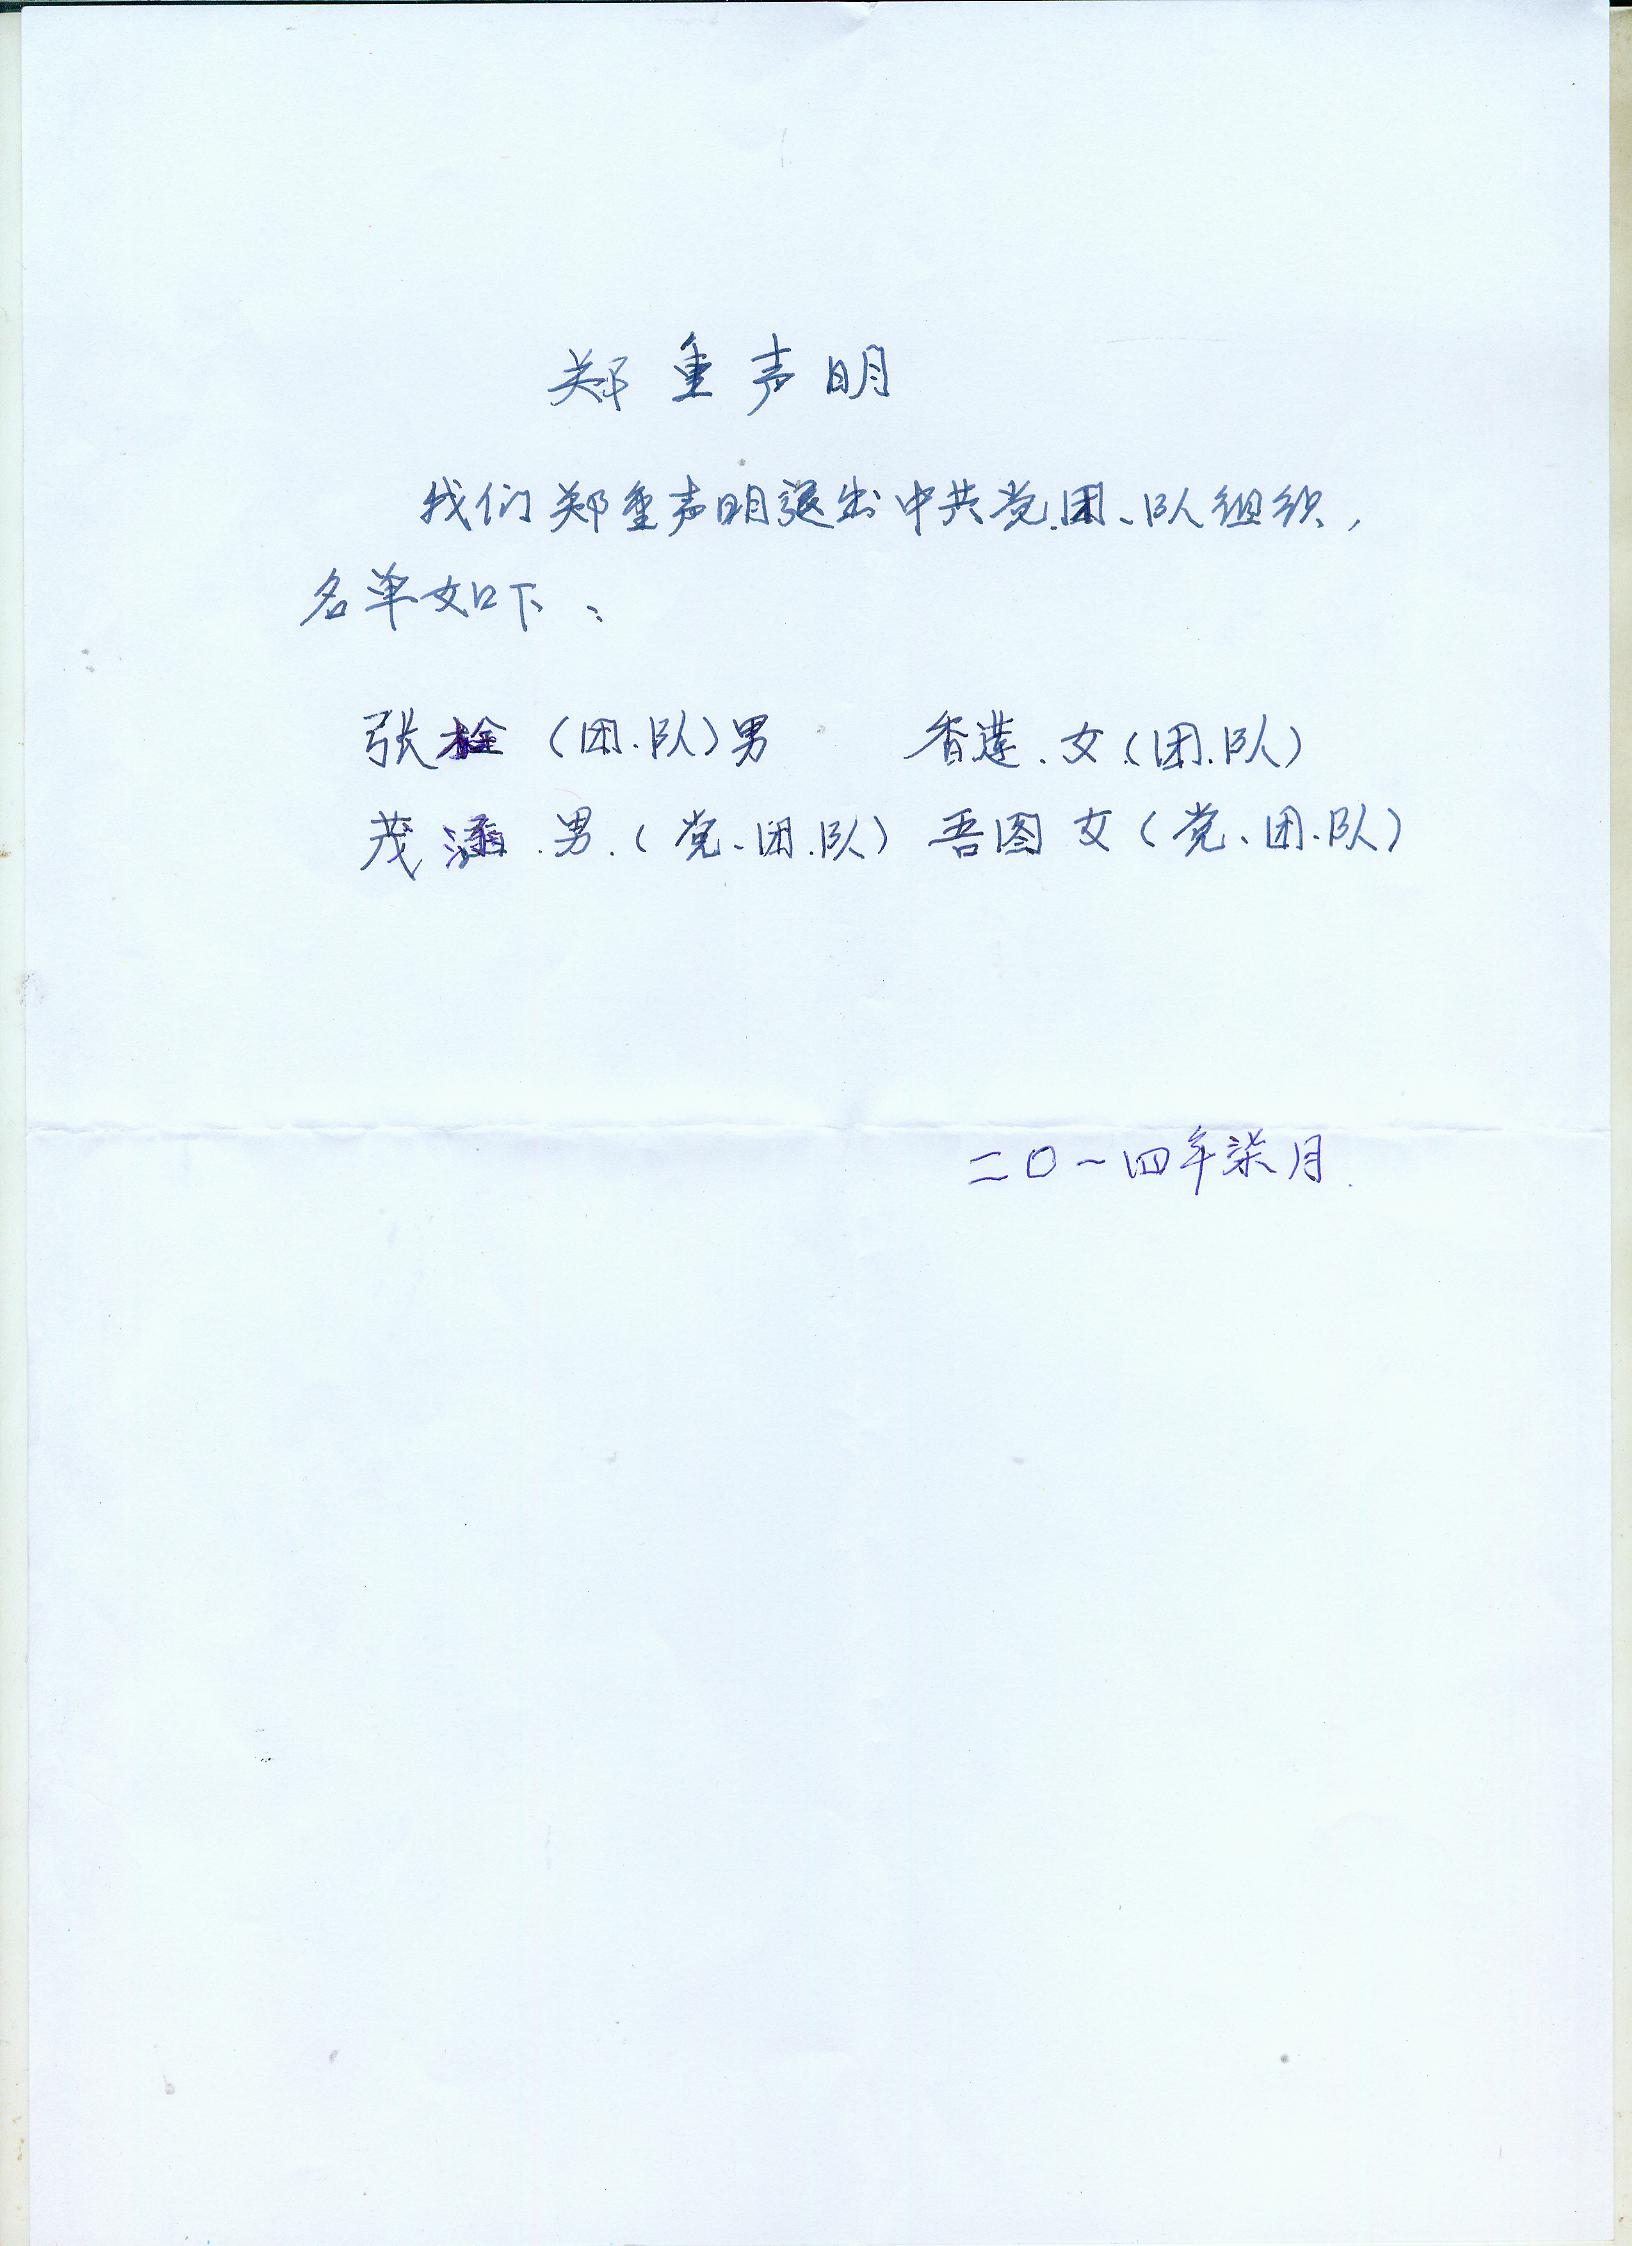 郑重声明
我们郑重声明退出中共党.团、队组织,
名单如下:
张栓(团.队)男 香莲.女.(团.队)
茂涵.男.(党、团.队) 吾图 女(党、团.队)
二〇一四年柒月.